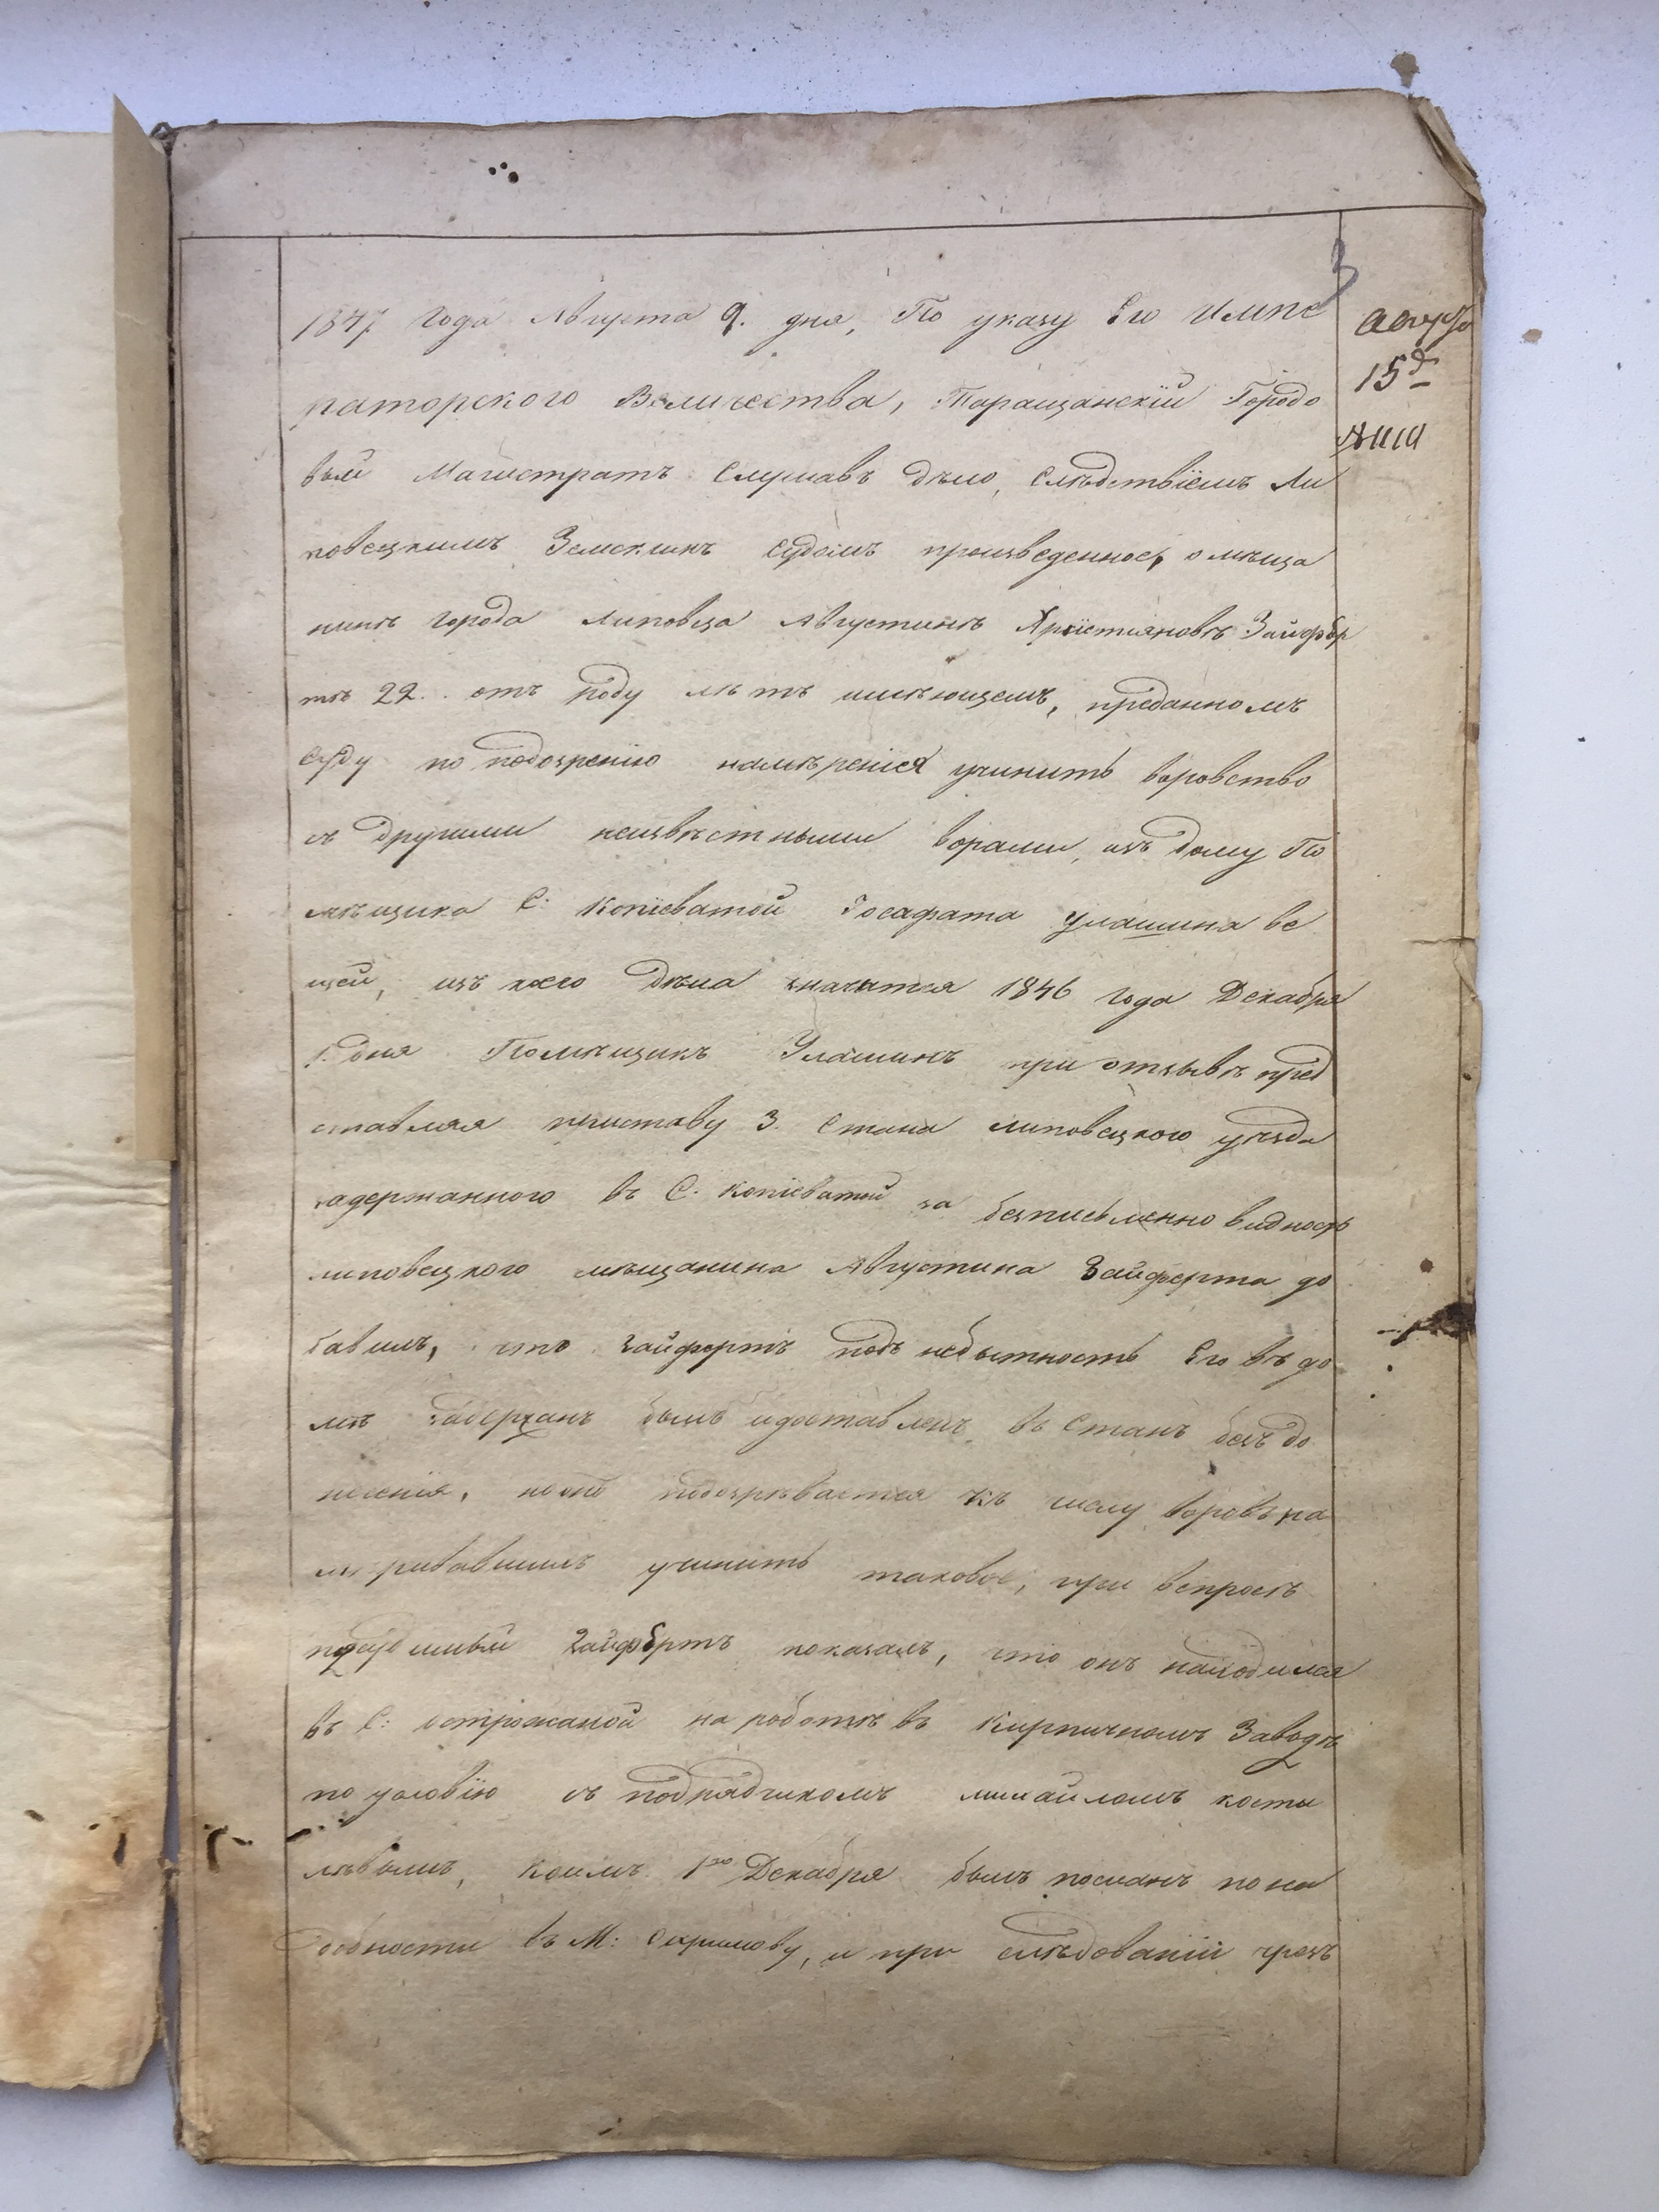 3
1847 года Августа 9. дня, По указу Его Импе
раторского Величества, Таращанскій Городо
вый Магистратъ Слушавъ дѣло, Слѣдствіемъ Ли
повецкимъ Земскимъ Судомъ произведенное, о мѣща
нинѣ города Липовца Августинѣ Христіановѣ Зайфер
тѣ 22. отъ роду лѣтъ имѣющемъ, преданномъ
Суду по подозрению намѣренія учинить воровство
съ другими неизвѣстными ворами, изъ дому По
мѣщика С: Копіеватой Іосафата Улашина ве
щей, изъ коего дѣла значится 1846 года Декабря
1. дня Помѣщикъ Улашинъ при отзывѣ пред
ставляя приставу 3. Стана Липовецкого уѣзда
задержанного въ С. Копіеватой за безписьменно видность
липовецкого мѣщанина Августина Зайферта до
бавилъ, что Зайфертъ подъ небытность Его въ до
мѣ задержанъ былъ и доставленъ въ Станъ безъ до
несенія, но онъ подозрѣвается къ числу воровъ на
мѣривавшимъ учинить таковое, при вспросѣ
подсудимый Зайфертъ показалъ, что онъ находился
въ С: Острожаной на роботѣ въ Кирпичномъ Заводѣ
по условію съ подрядчикомъ михайломъ косты
лѣвымъ, коимъ 1го Декабря былъ посланъ по на
добности въ М: Скримову, и при слѣдованіи чрезъ
15д